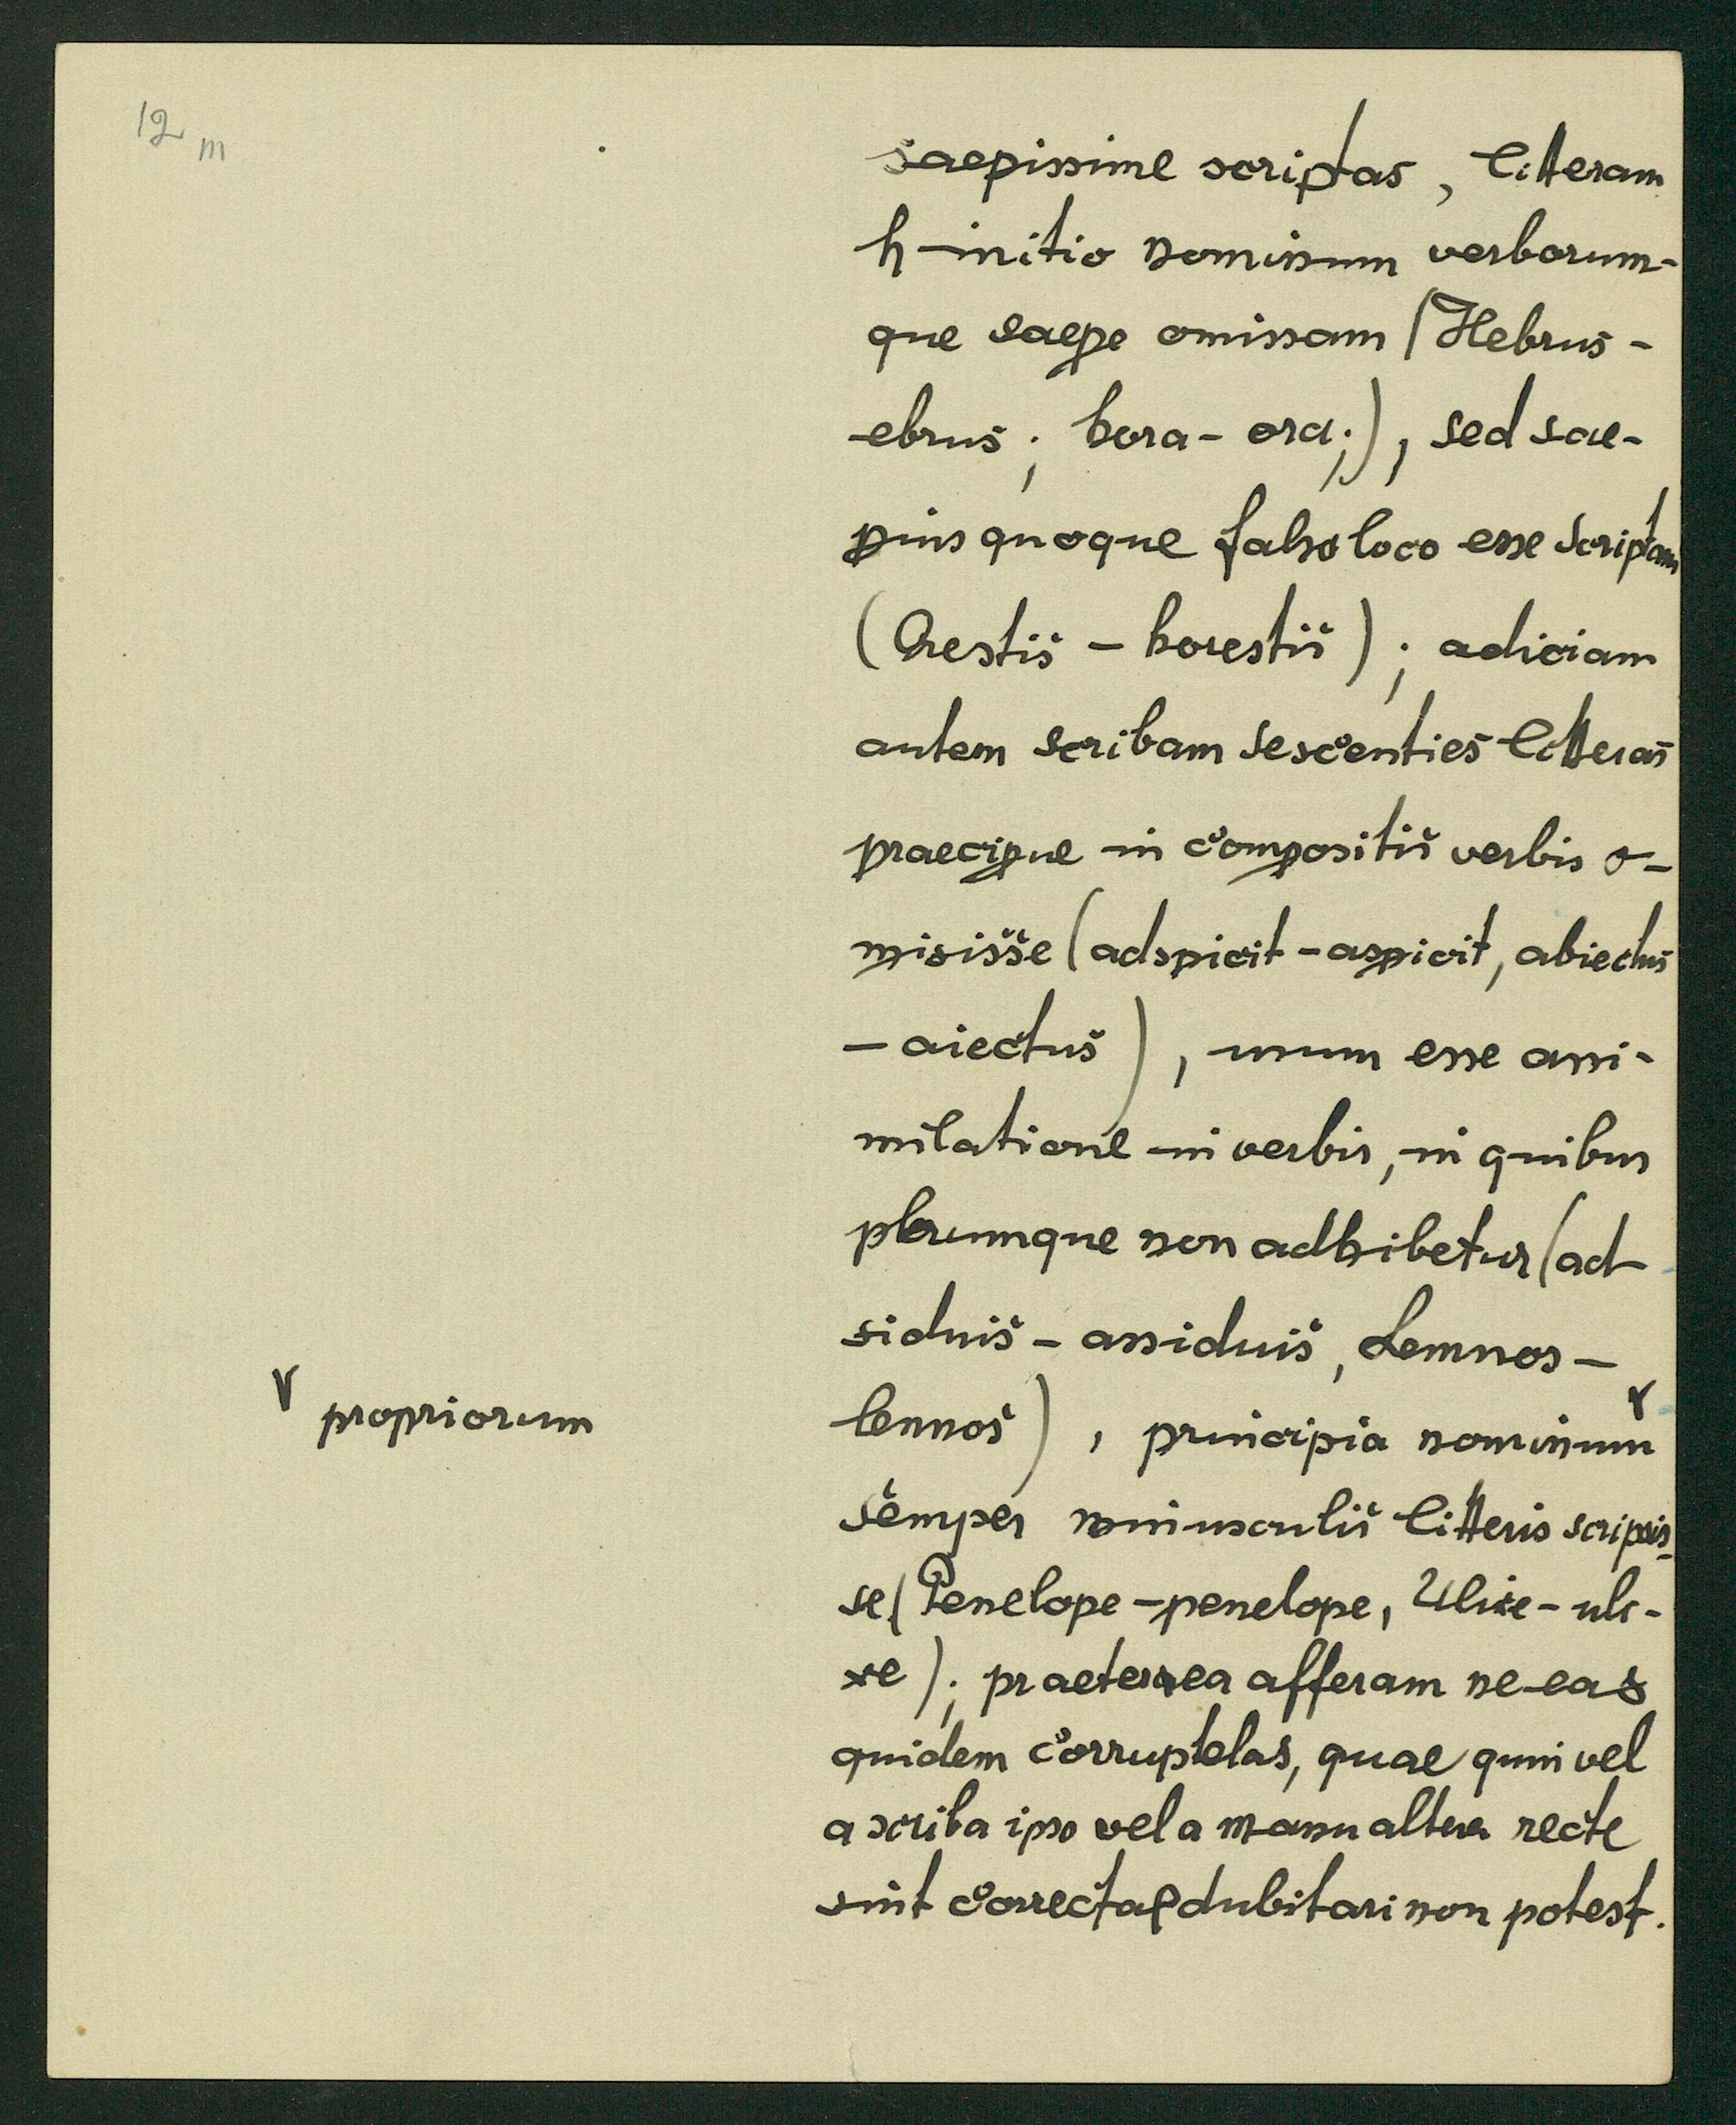 12 m
saepissime scriptas, litteram
h initio nominum verborum-
que saepe omissam (Hebrus -
ebrus; hora - ora;), sed sae-
pius quoque falso loco esse scriptam
(Orestis - horestis); adiciam
autem scribam sescenties litteras
praecipue in compositis verbis o-
misisse (adspicit - aspicit, abiectus
- aiectus), usum esse assi-
milatione in verbis, in quibus
plerumque non adhibetur (ad-
siduis - assiduis, Lemnos -
lennos), principia nominum
propriorum
semper minusculis litteris scripsis-
se (Penelope - penelope, Ulixe - uli-
xe); praeterea afferam ne eas
quidem corruptelas, quae quin vel
a scriba ipso vel a manu altera recte
sint correctae dubitari non potest.